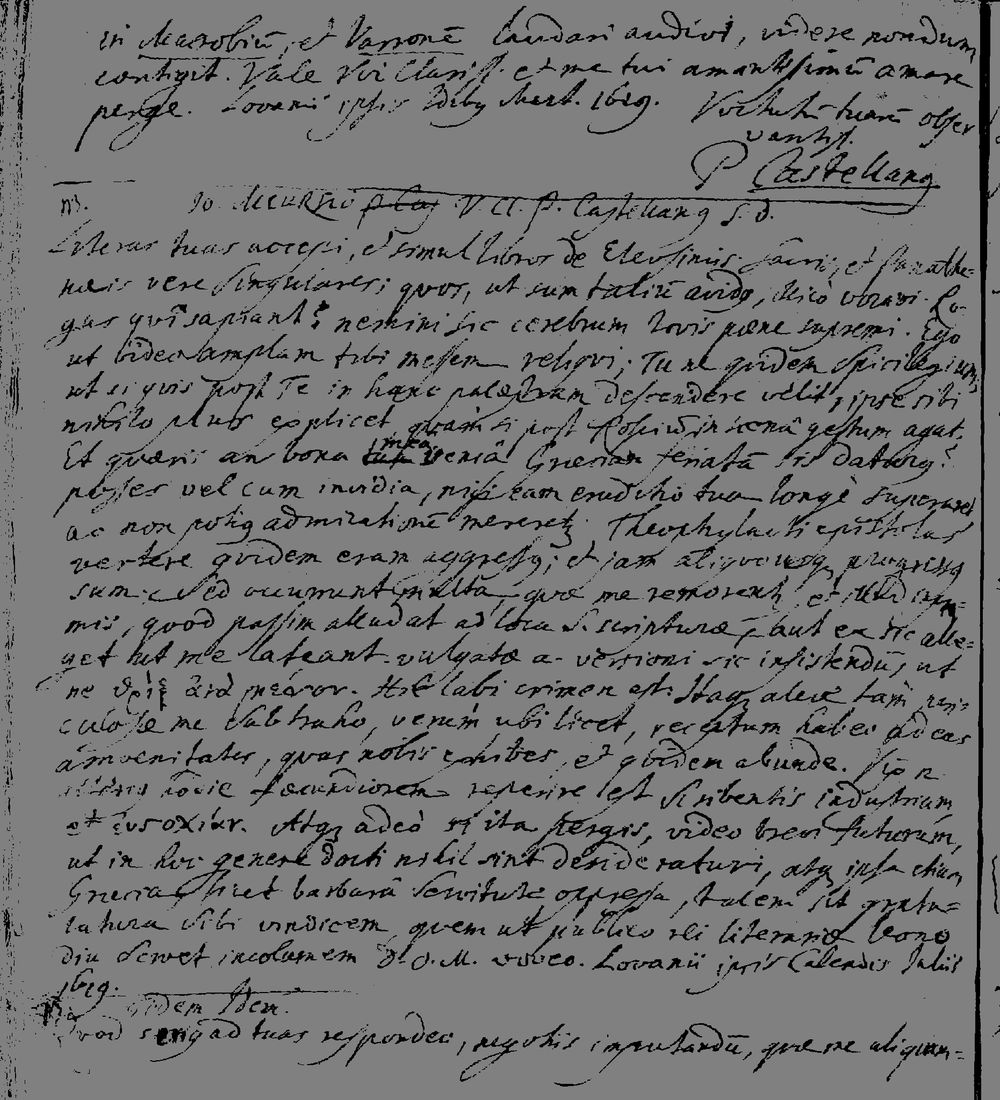 in Macrobiū, et Varronē laudari audivi, videre nondum
contigit. Vale Vir Clariss. et me tui amantissimū amare
perge. Lovanii ipsis Idib⁹ Mart. 1619. Virtutū tuarū obser
vantiss.
P Castellan⁹
Io. Meursio V. Cl. P. Castellan⁹ S. d.
Literas tuas accepi, et simul libros de Eleusiniis sacris, et Panathe-
næis vere singulares; quos, ut sum taliū avid⁹, illico voravi. Ro-
gas qui sapiant? nemini sic cerebrum Iovis pæne supremi. Ego
ut video amplam tibi messem reliqui; Tu ne quidem spicilegium,
ut si quis post Te in hanc palæstram descendere velit, ipse sibi
nihilo plus explicet, quàm si post Rosciū in scenâ gestum agat.
Et quæris an bona mea veniâ Græciam feriatā sis datur⁹?
posses vel cum invidia, nisi eam eruditio tua longè superaret
ac non poti⁹ admirationē mereret. Theophylacti epistolas
vertere quidem eram aggress⁹; et jam aliquousq progress⁹
sum. Sed occurrunt multa, quæ me remorent, et illud im-
mis, quod passim alludat ad loca S. scripturæ, aut ea sic alle-
get ut me lateant. vulgatæ a. versioni sic insistendū, ut
ne labi crimen est. Itaq aleæ tam peri-
culosæ me subtraho, verùm ubi licet, receptum habeo ad eas
amoenitates, quas nobis exhibes, et quidem abunde.
foecundiorem reperire est scribentis industriam
et Atq adeò si ita pergis, video brevi futurum,
ut in hoc genere docti nihil sint desideraturi, atq ipsa etiam
Græcia, licet barbarâ servitute oppressa, talem sit gratu-
latura sibi vindicem, quem ut publico rei literariæ bono
diu servet incolumem D. O. M. voveo. Lovanii ipsis Calendis Iulii
1619.
Eidem Idem.
Quod ad tuas respondeo, negotiis imputandū, quæ me aliquan-